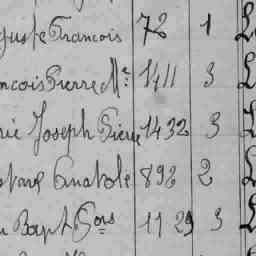 guste Francois 72 1 L
ncois Pierre Me 1411 3 L
rie Joseph Pierre 1432 3 L
stave Anatole 892 2 L
n Bapt Gors 1129 3 L